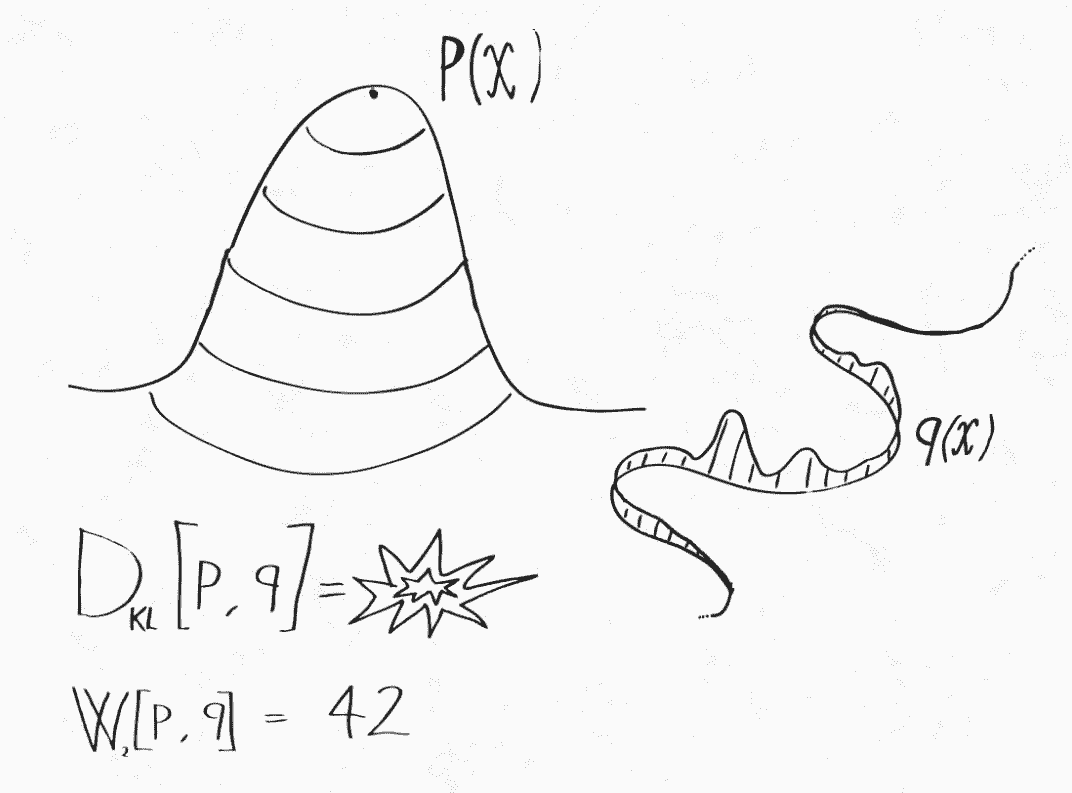 P(X)
q(X)
D_KL [P, q] =
W_2 [P, q] = 42